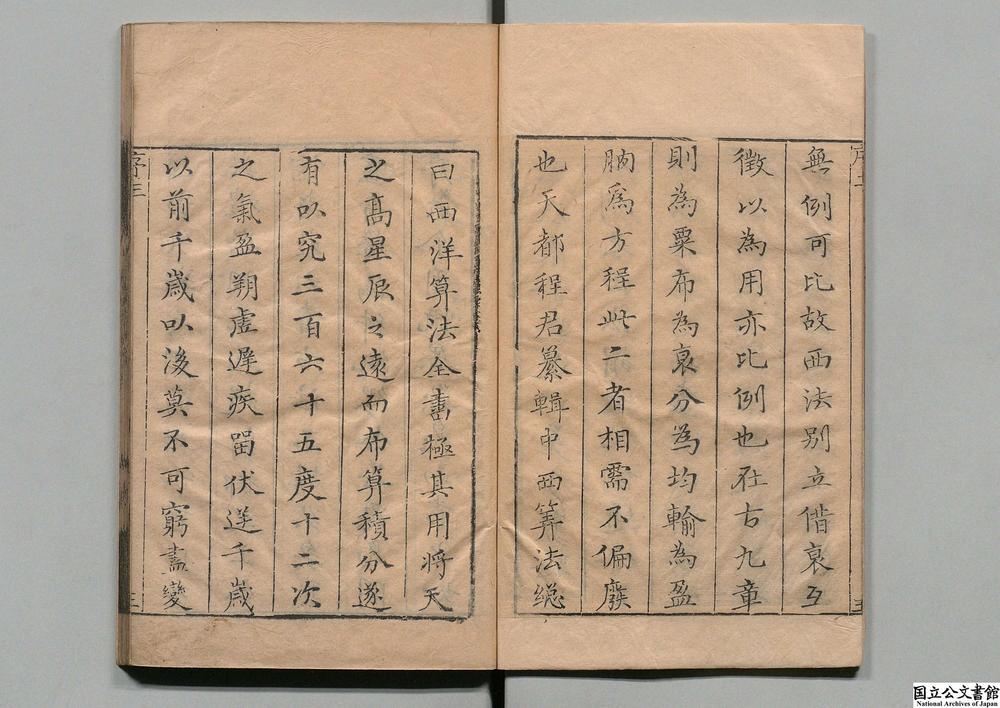 無例可比故西法别立借衰互
徵以為用亦比例也在古九章
則為粟布為衰分為均輸為盈
朒為方程此二者相需不偏廢
也天都程君纂輯中西筭法總
曰西洋算法全書極其用将天
之髙星辰之遠而布算積分遂
有以究三百六十五度十二次
之氣盈朔虚遲疾留伏逆千歲
以前千歲以後莫不可窮盡變
序三
三
国立公文書館
National Archives of Japan